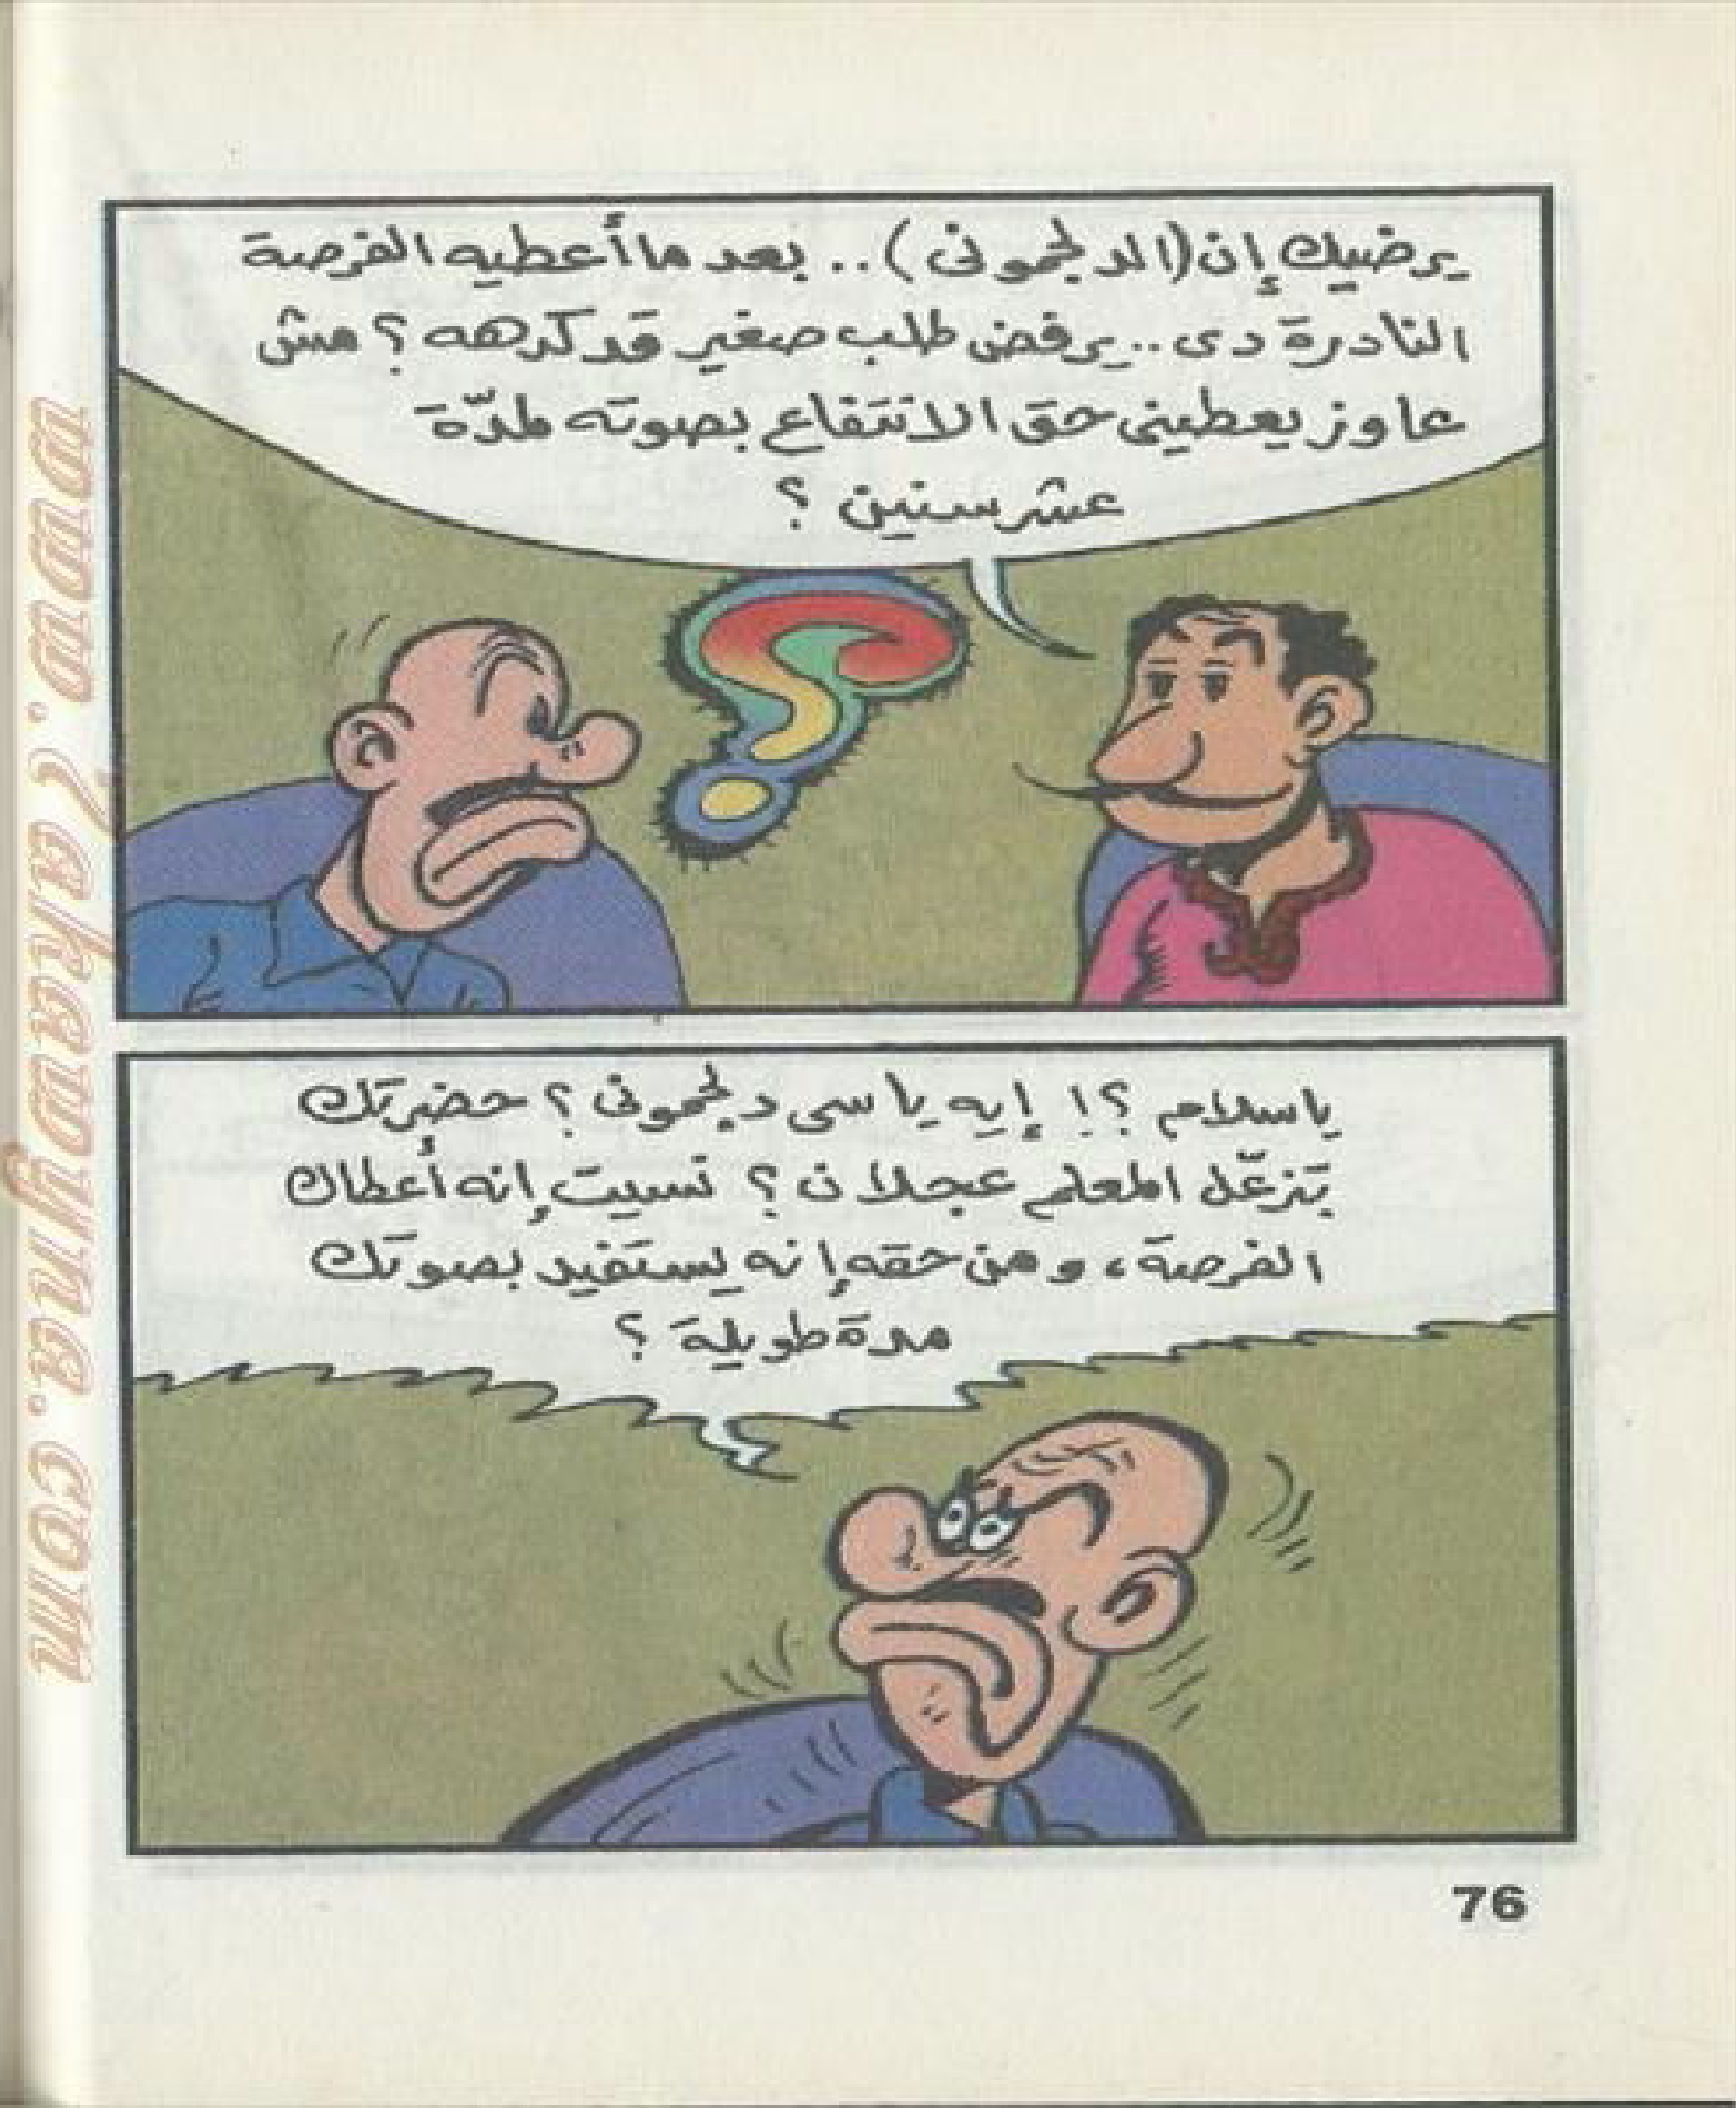 يرضيك إن (الدلجمونى) .. بعد ما أعطيه الفرصة
النادرة دى .. يرفض طلب صغير قد كدهه ؟ مش
عاوز يعطينى حق الانتفاع بصوته لمدّة
عشر سنين ؟
يا سلام ؟! إيه يا سى دلجمونى ؟ حضرتك
تزعّل المعلم عجلان ؟ نسيت إنه أعطاك
الفرصة ، ومن حقه إنه يستفيد بصوتك
مدة طويلة ؟
76
www.7akawyhana.com